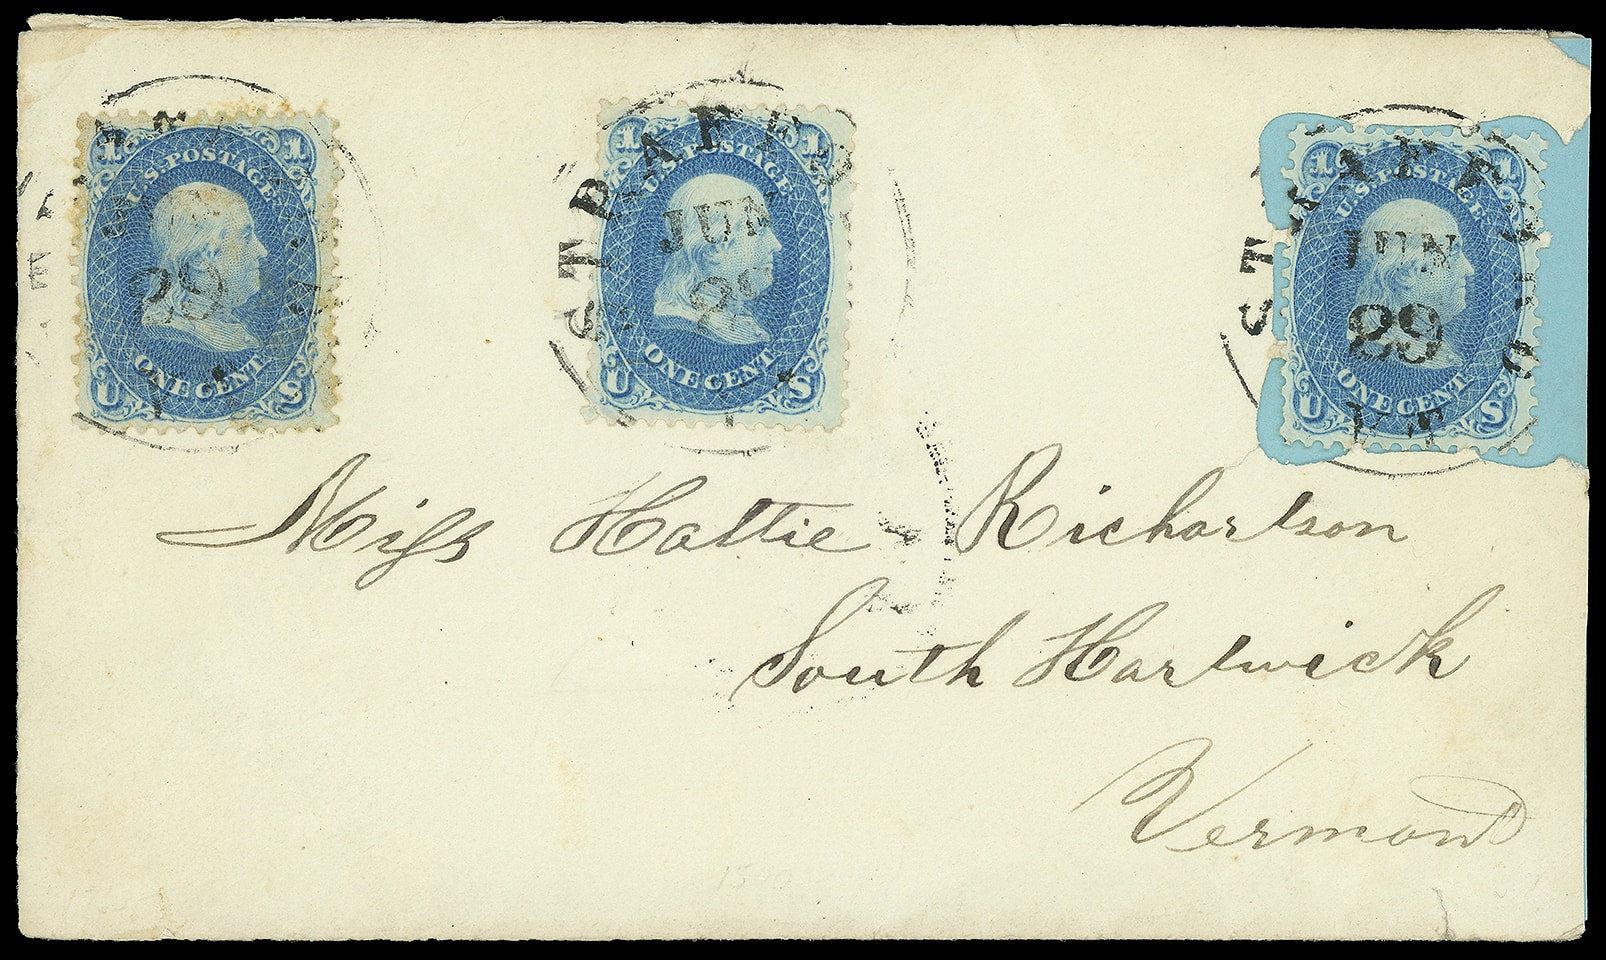 1 1
U.S. POSTAGE
29
ONE CENT
U S
STRAFFO
1 1
U.S. POSTAGE
JUN
29
ONE CENT
U S
STRAFFORD
1 1
U.S. POSTAGE
JUN
29
ONE CENT
U S
VT
Miss Hattie Richartson
South Hartwick
Vermont